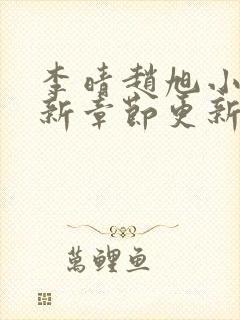 李晴趙旭小
新章節更新
萬鯉魚